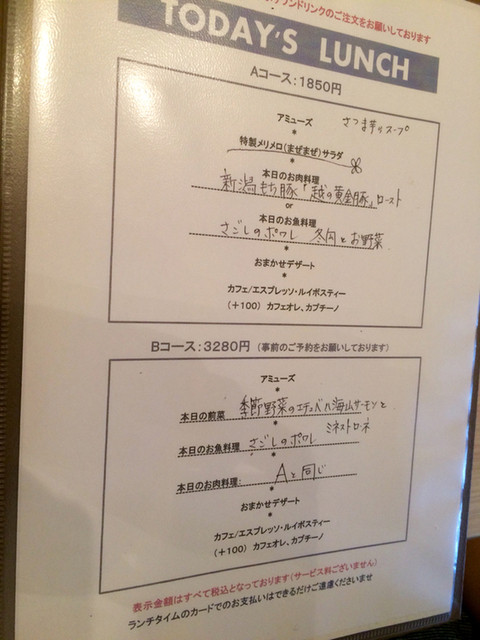 ワンドリンクのご注文をお願いしております
TODAY'S LUNCH
Aコース:1850円
アミューズ さつま芋のスープ
*
特製メリメロ(まぜまぜ)サラダ
*
本日のお肉料理
新潟もち豚「越の黄金豚」ロースト
or
本日のお魚料理
さごしのポワレ 冬瓜とお野菜
*
おまかせデザート
*
カフェ/エスプレッソ・ルイボスティー
(+100) カフェオレ、カプチーノ
Bコース:3280円 (事前のご予約をお願いしております)
アミューズ
*
本日の前菜 季節野菜のエチュベ 海山サーモンと
ミネストローネ
*
本日のお魚料理 さごしのポワレ
*
本日のお肉料理: Aと同じ
*
おまかせデザート
*
カフェ/エスプレッソ・ルイボスティー
(+100) カフェオレ、カプチーノ
表示金額はすべて税込となっております(サービス料ございません)
ランチタイムのカードでのお支払いはできるだけご遠慮くださいませ